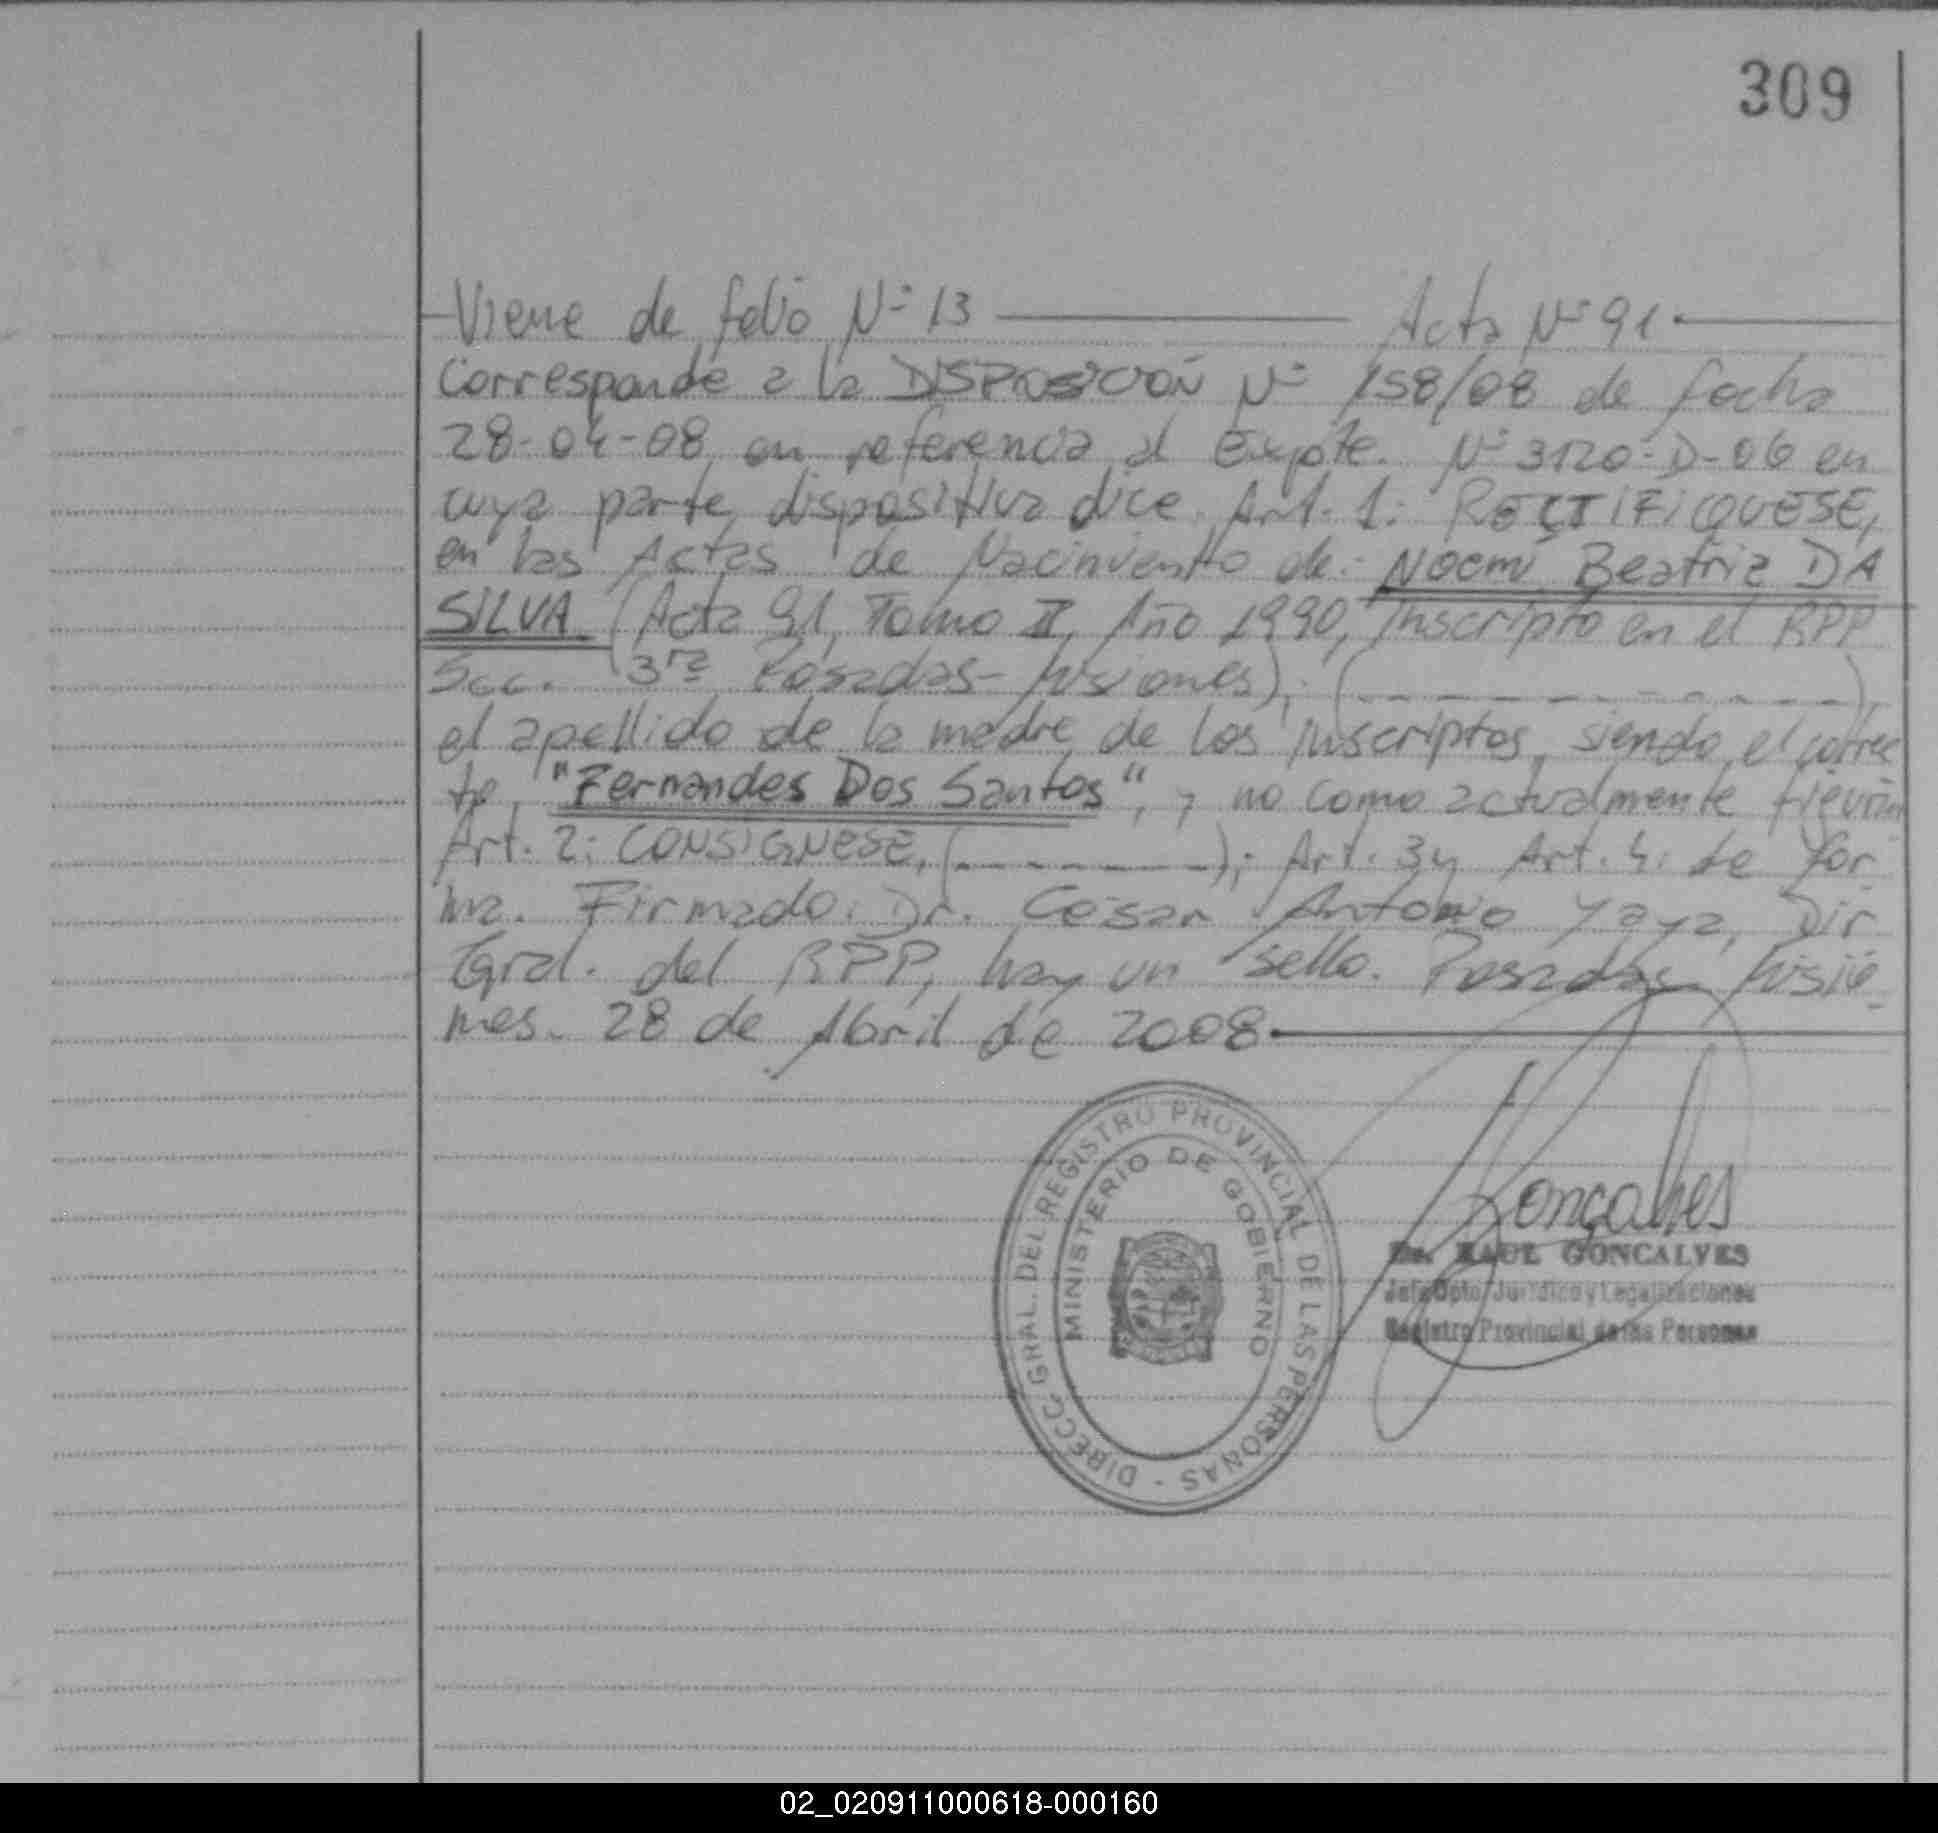 309
Viene de folio Nº 13 Acta Nº 91.
Corresponde a la DISPOSICIÓN Nº 158/08 de fecha
28-04-08, en referencia al Expte. Nº 3120-D-06 en
cuya parte dispositiva dice Art. 1: RECTIFICQUESE,
en las Actas de Nacimiento de: Noemí Beatriz DA
SILVA (Acta 91, Tomo II, Año 1990, Inscripto en el RPP
Secc. 3ra Posadas-Misiones), (_ _ _ _ _ _ _ _ _ _),
el apellido de la madre de los inscriptos, siendo el correc
to, "Fernandes Dos Santos", y no como actualmente figuran
Art. 2: CONSIGNESE, (_ _ _ _ _ _ _); Art. 3 y Art. 4: de for
ma. Firmado. Dr. César Antonio Yaya, Dir
Gral. del RPP, hay un sello. Posadas Misio
nes. 28 de Abril de 2008.
DIRECC. GRAL. DEL REGISTRO PROVINCIAL DE LAS PERSONAS -
MINISTERIO DE GOBIERNO
Gonçalves
RAUL GONCALVES
Jefe Dpto. Jurídico y Legalizaciones
Registro Provincial de las Personas
02_020911000618-000160